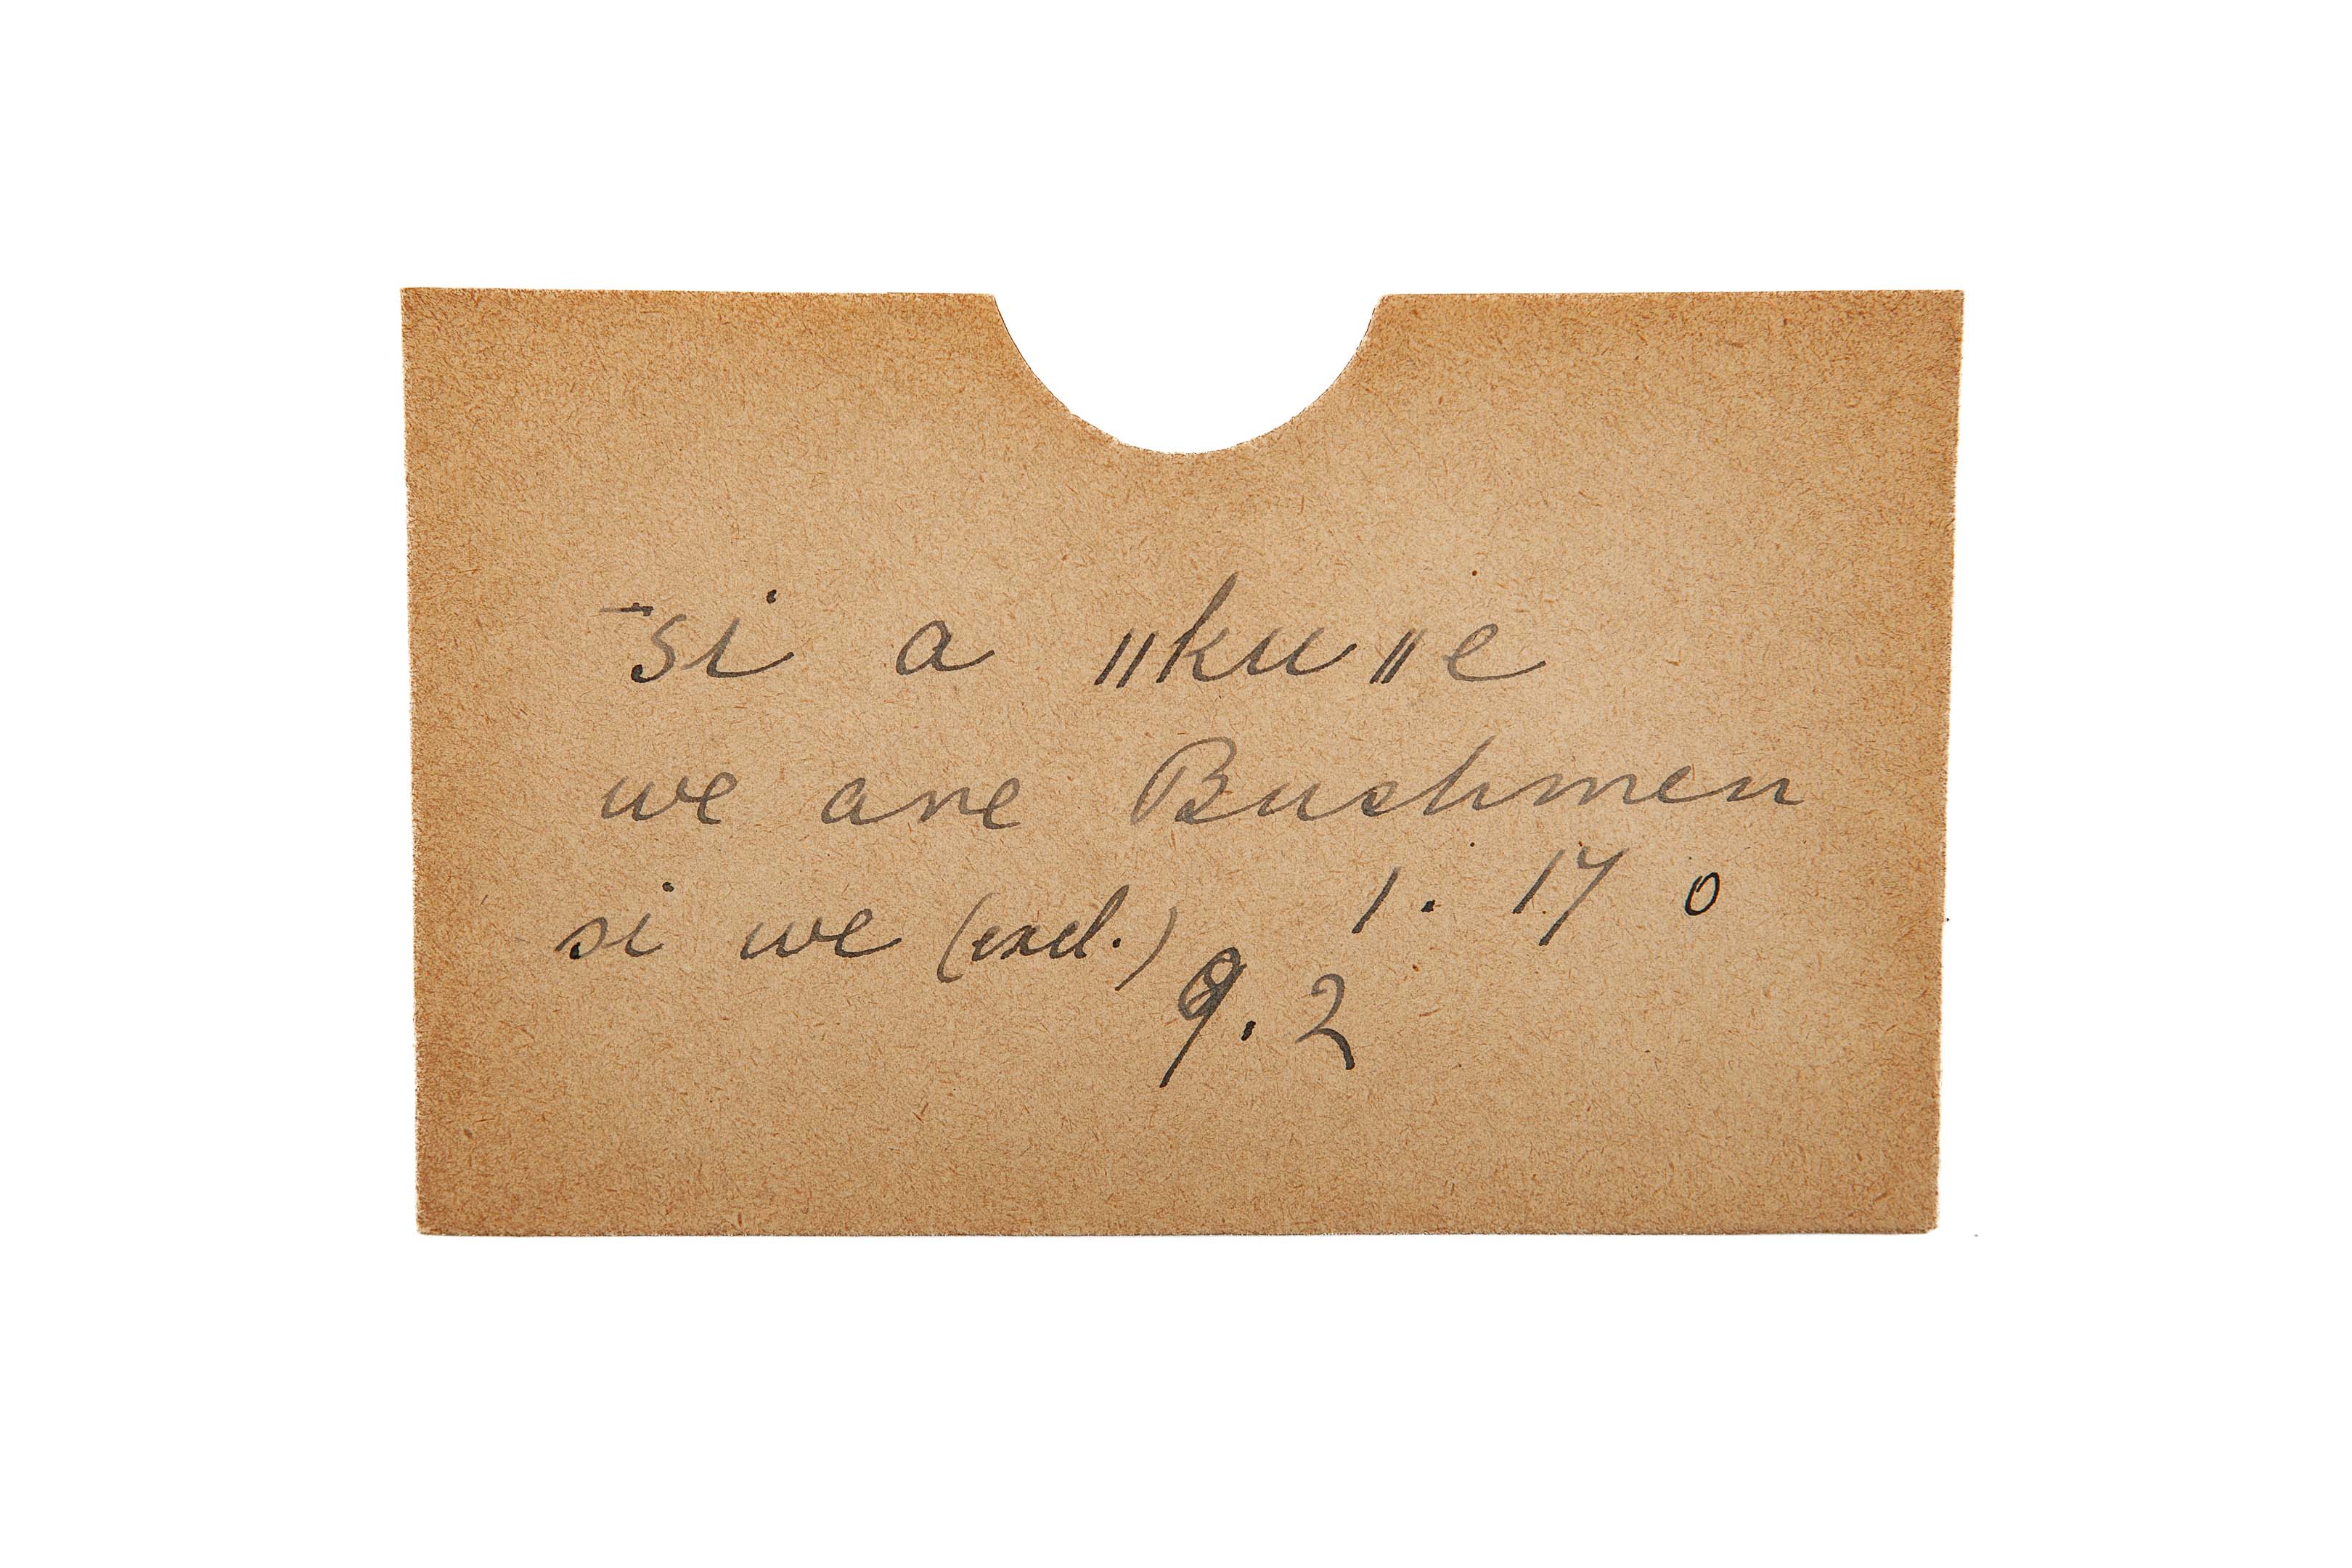 ¯si a ǁkuǁe
we are Bushmen
si we (excl.) 1. 17 0
9. 2